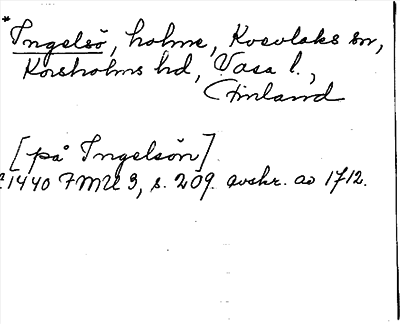 * Ingelsö, holme, Kvevlaks sn,
Korsholms hd, Vasa l.,
Finland
[på Ingelsön]
1440 FMU 3, s. 209. avskr. av 1712.